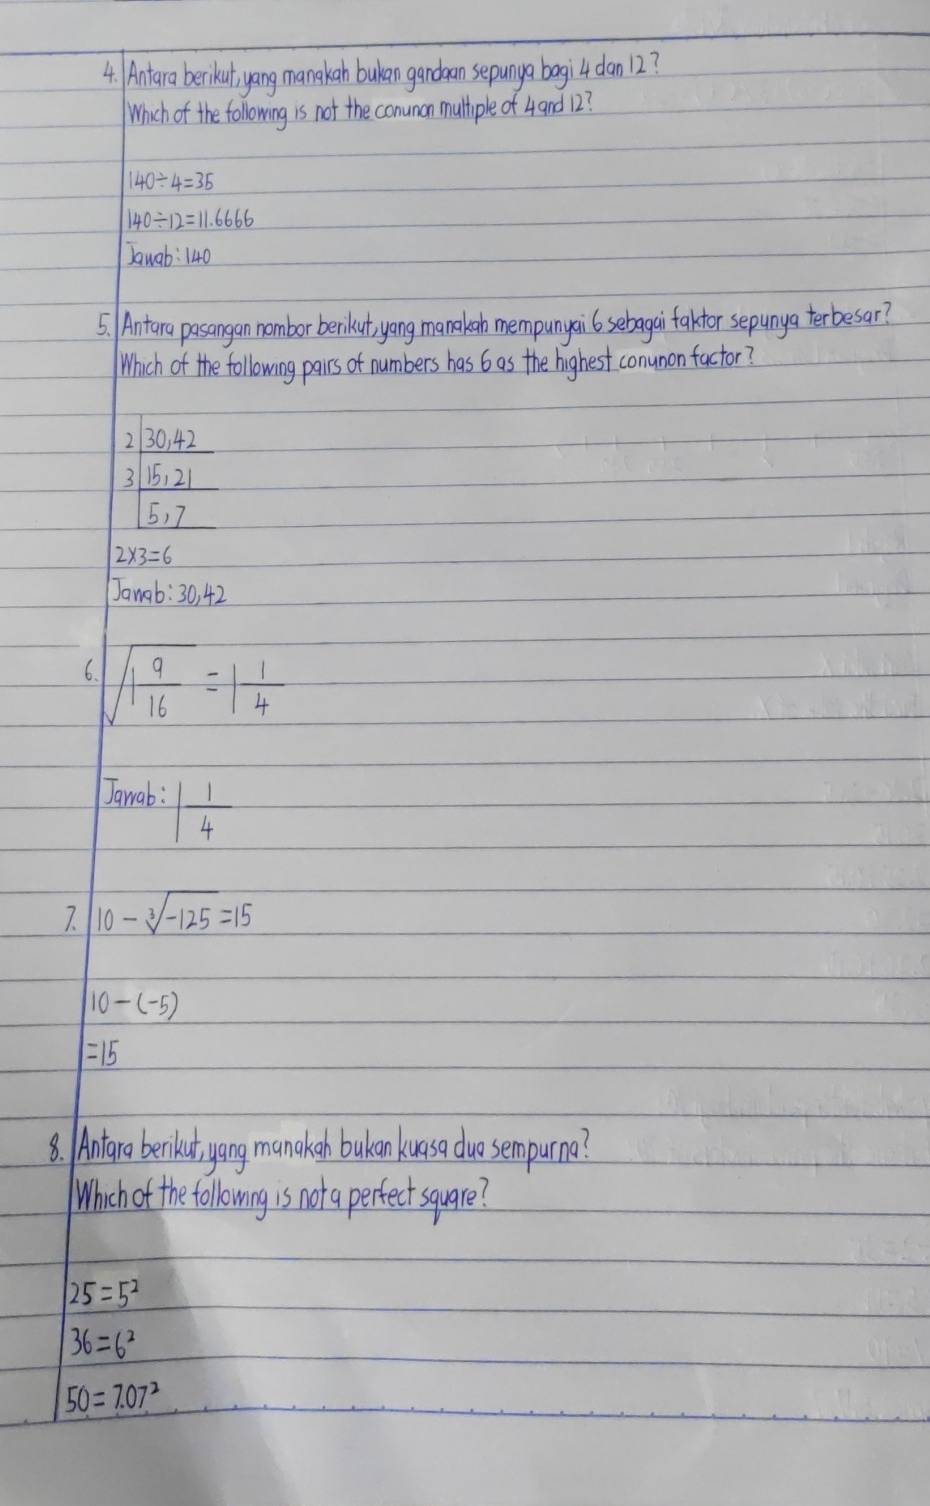 4. Antara berikut, yang manakah bukan gandaan sepunya bagi 4 dan 12?
Which of the following is not the conunon multiple of 4 and 12?
140÷4=35
140÷12=11.6666
Jawab: 140
5. Antara pasangan nombor berikut, yang manakah mempunyai 6 sebagai faktor sepunya terbesar?
Which of the following pairs of numbers has 6 as the highest conunon factor?
2 | 30, 42
3 | 15, 21
| 5, 7
2×3=6
Jawab: 30, 42
6. √1 9/16 = 1 1/4
Jawab: 1 1/4
7. 10 - ∛-125 = 15
10-(-5)
=15
8. Antara berikut, yang manakah bukan kuasa dua sempurna?
Which of the following is not a perfect square?
25=5²
36=6²
50=7.07²